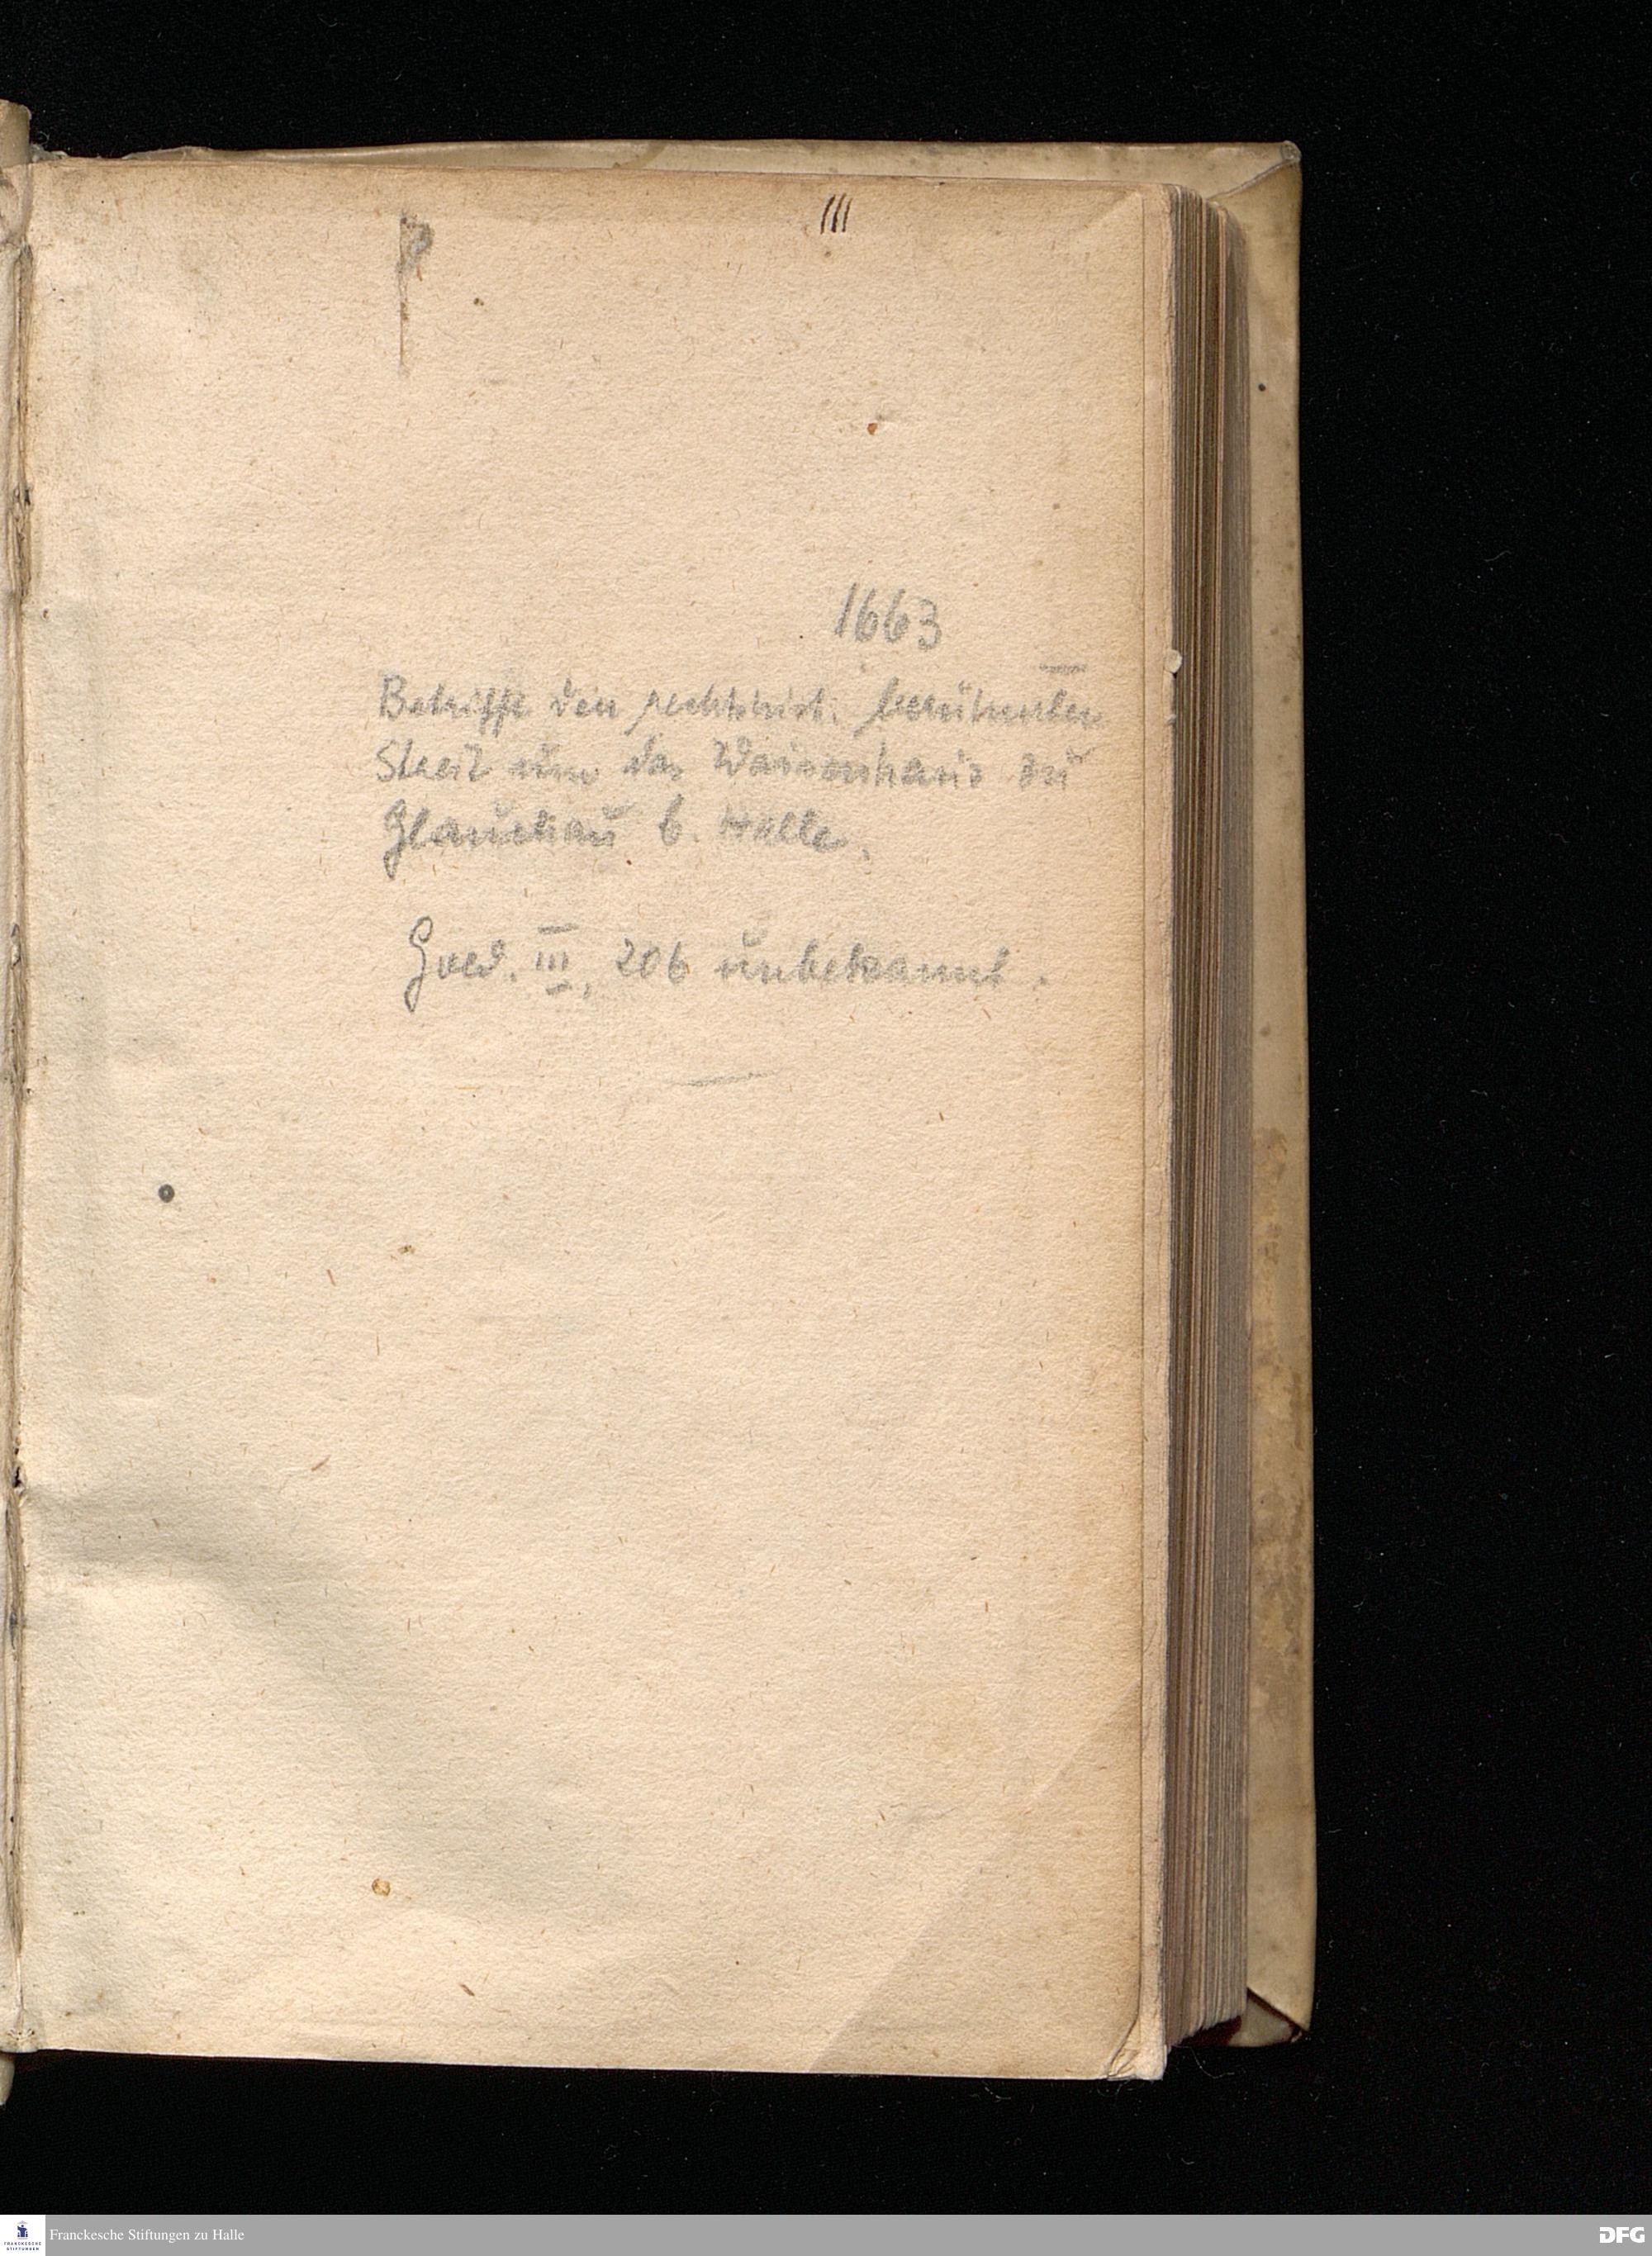 111
1663
Betrifft den rechtshist. berühmten
Streit um das Waisenhaus zu
Glauchau b. Halle.
Goed. III, 206 unbekannt.
Franckesche Stiftungen zu Halle
FRANCKESCHE
STIFTUNGEN
DFG